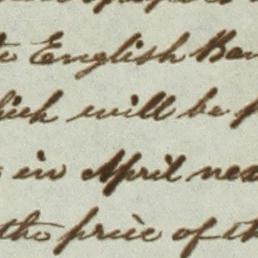 English Ban
hich will be p
in April nex
the price of th